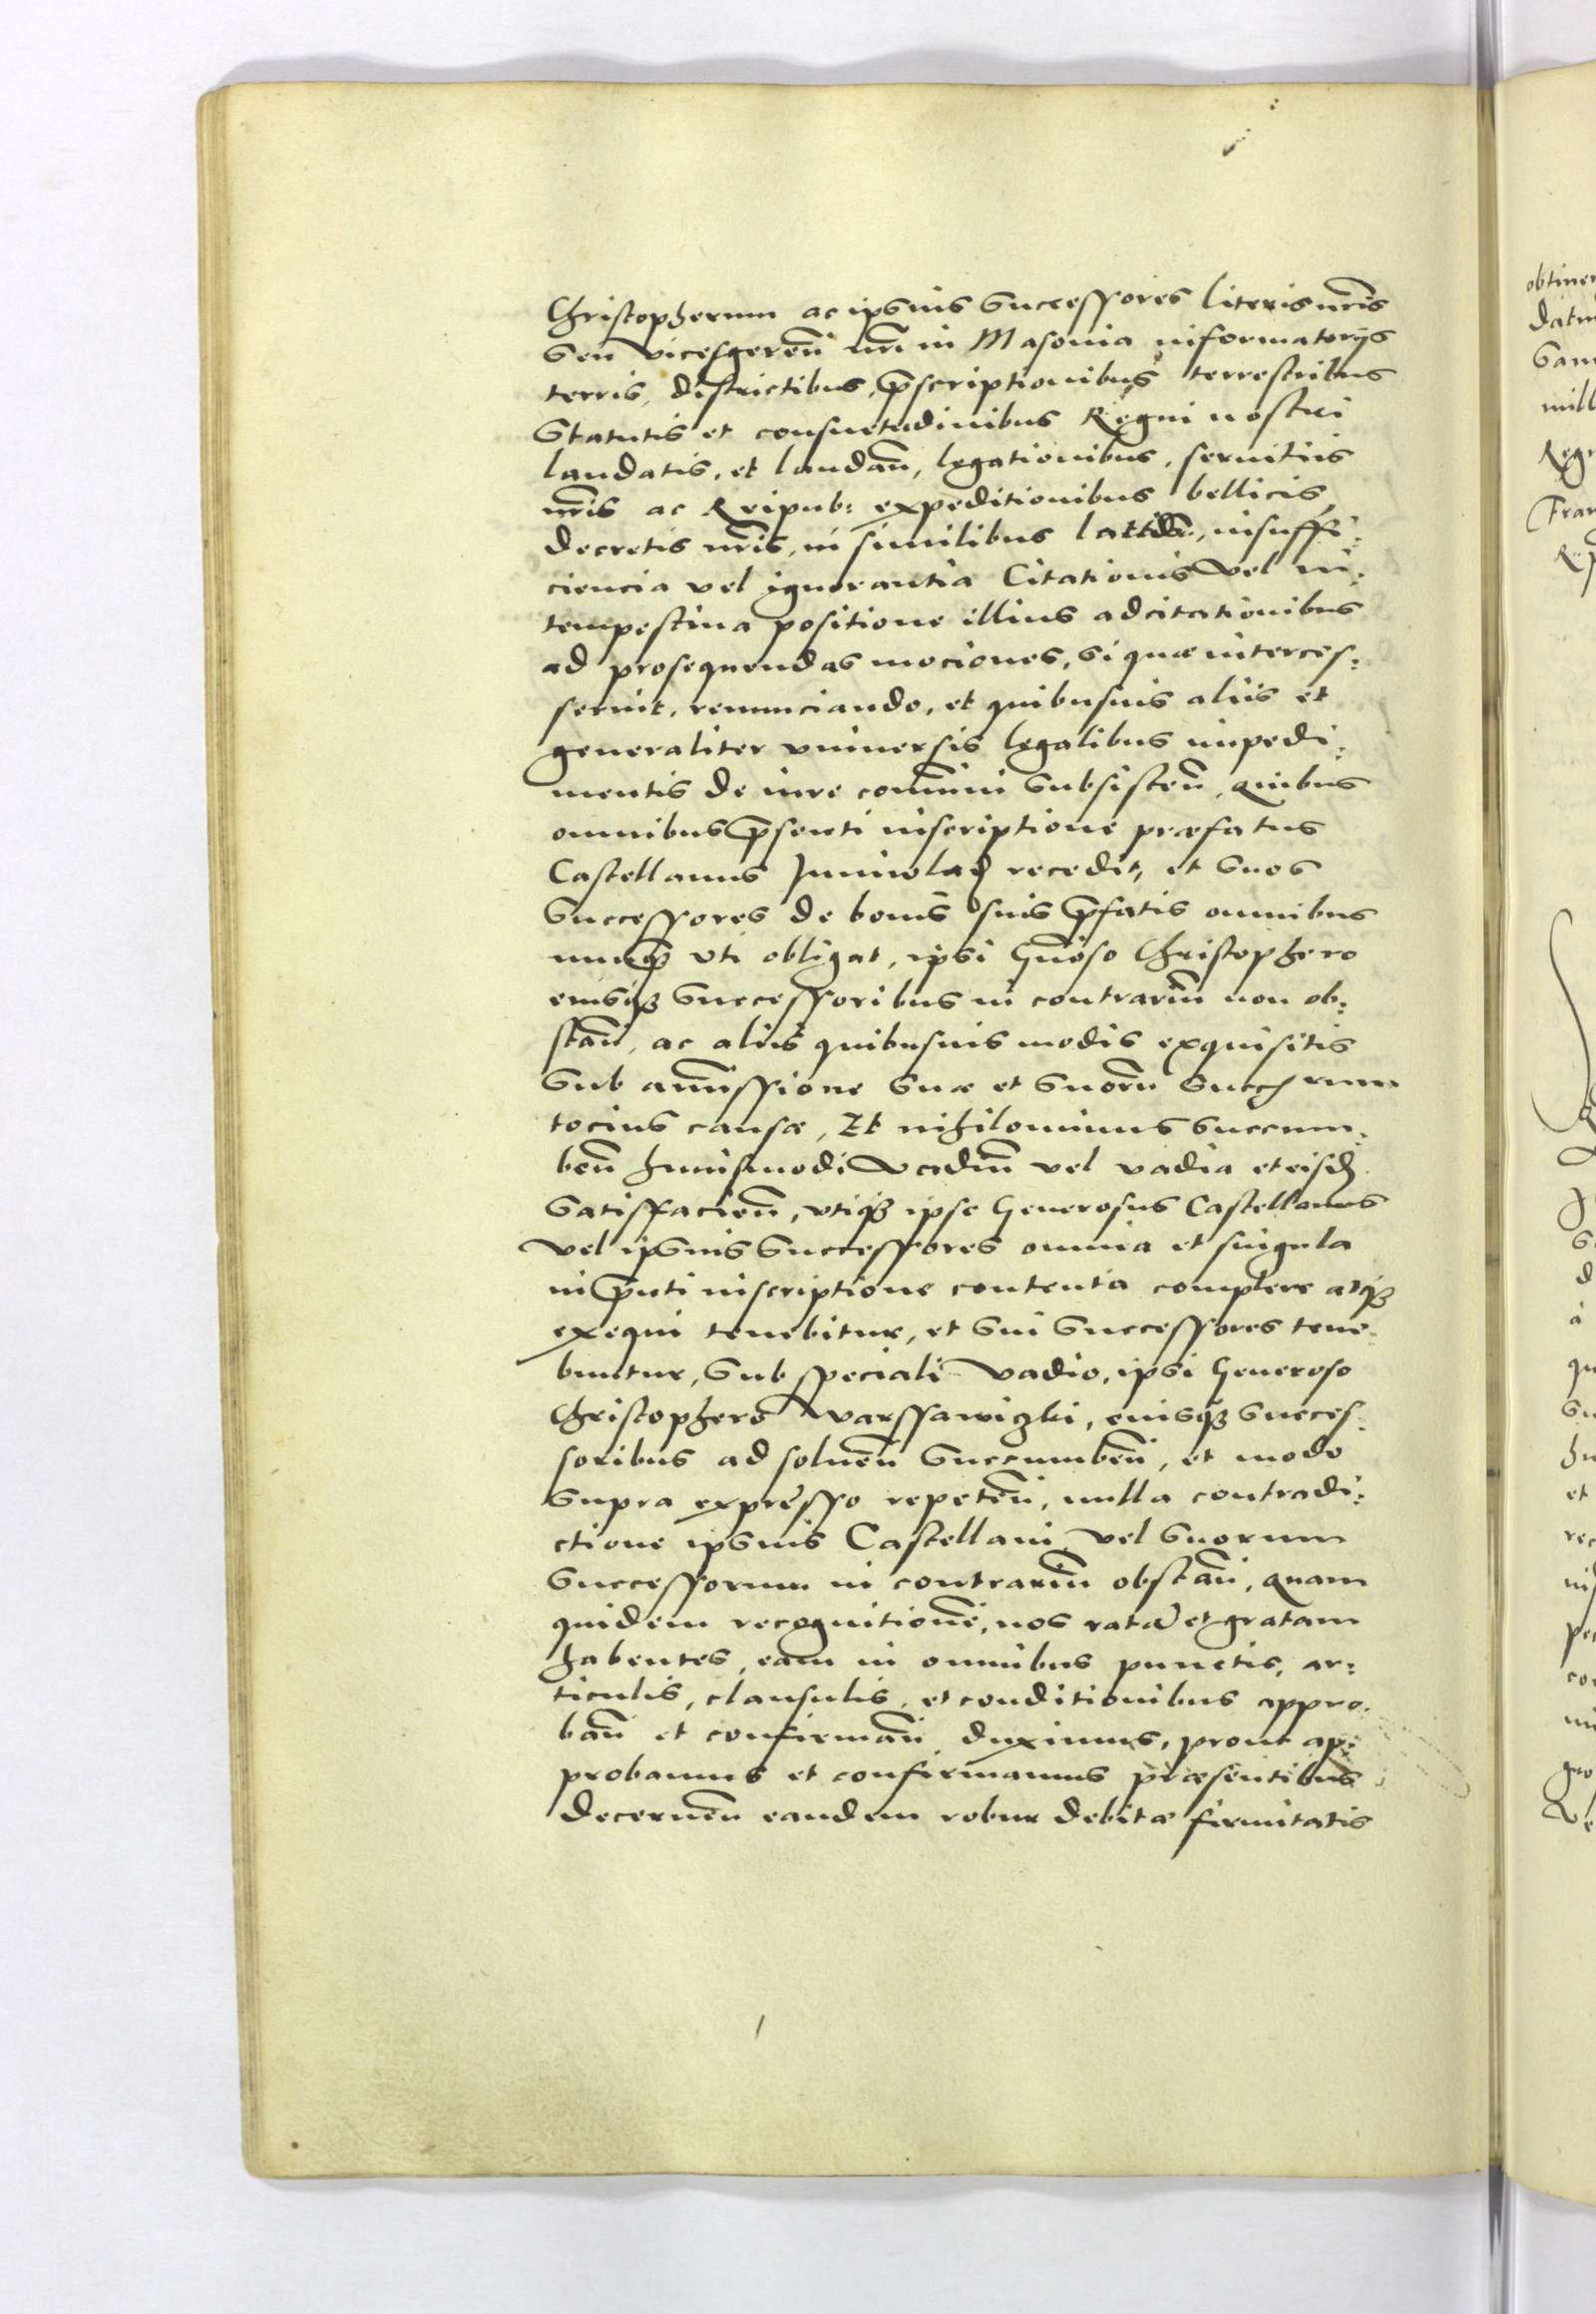 Christopherum ac ipsius Successores literis nr̃is
Seu vicesgereñ nrĩ in Masouia informatorijs
terris, districtibus, p̃scriptionibus terrestribus
Statutis et consuetudinibus Regni nostri
laudatis, et laudañ, legationibus, seruitiis
nr̃is ac Reipub: expeditionibus bellicis,
decretis nr̃is, in similibus, insuffi:
ciencia vel ignorantia Citationis vel in:
tempestiua positione illius adcitationibus
ad prosequendas mociones, si quæ interces:
serint, renunciando, et quibusuis aliis et
generaliter vniuersis legalibus impedi:
mentis de iure com̃uni Subsisteñ, quibus
omnibus p̃senti inscriptione præfatus
Castellanus recedit, et suos
Successores de bonis suis p̃fatis omnibus
nunq̃ vti obligat, ipsi Gñoso Christophero
eiusq3 Successoribus in contrariũ non ob:
stañ, ac aliis quibusuis modis exquisitis
Sub amissione suæ et suorũ
tocius causæ, Et nihilominus succum:
beñ huiusmodi vadiũ vel vadia et eisd
Satisfacieñ, vtiq3 ipse Generosus Castellanus
vel ipsius Successores omnia et singula
in p̃nti inscriptione contenta complere atq3
exequi tenebitur, et sui Successores tene:
buntur, Sub speciali vadio, ipsi Generoso
Christophero Warssawiczki, eiusq3 Succes:
soribus ad solueñ Succumbeñ, et modo
Supra expresso repeteñ, nulla contradi:
ctione ipsius Castellani vel suorum
Successorum in contrariũ obstañ, quam
quidem recognitionẽ, nos ratã et gratam
habentes, eam in omnibus punctis, ar:
ticulis, clausulis, et conditionibus appro:
bañ et confirmañ duximus, prout ap:
probamus et confirmamus præsentibus
decerneñ eandem robur debitæ firmitatis
obtiner
datu
Sam
mill
Regn
Fran